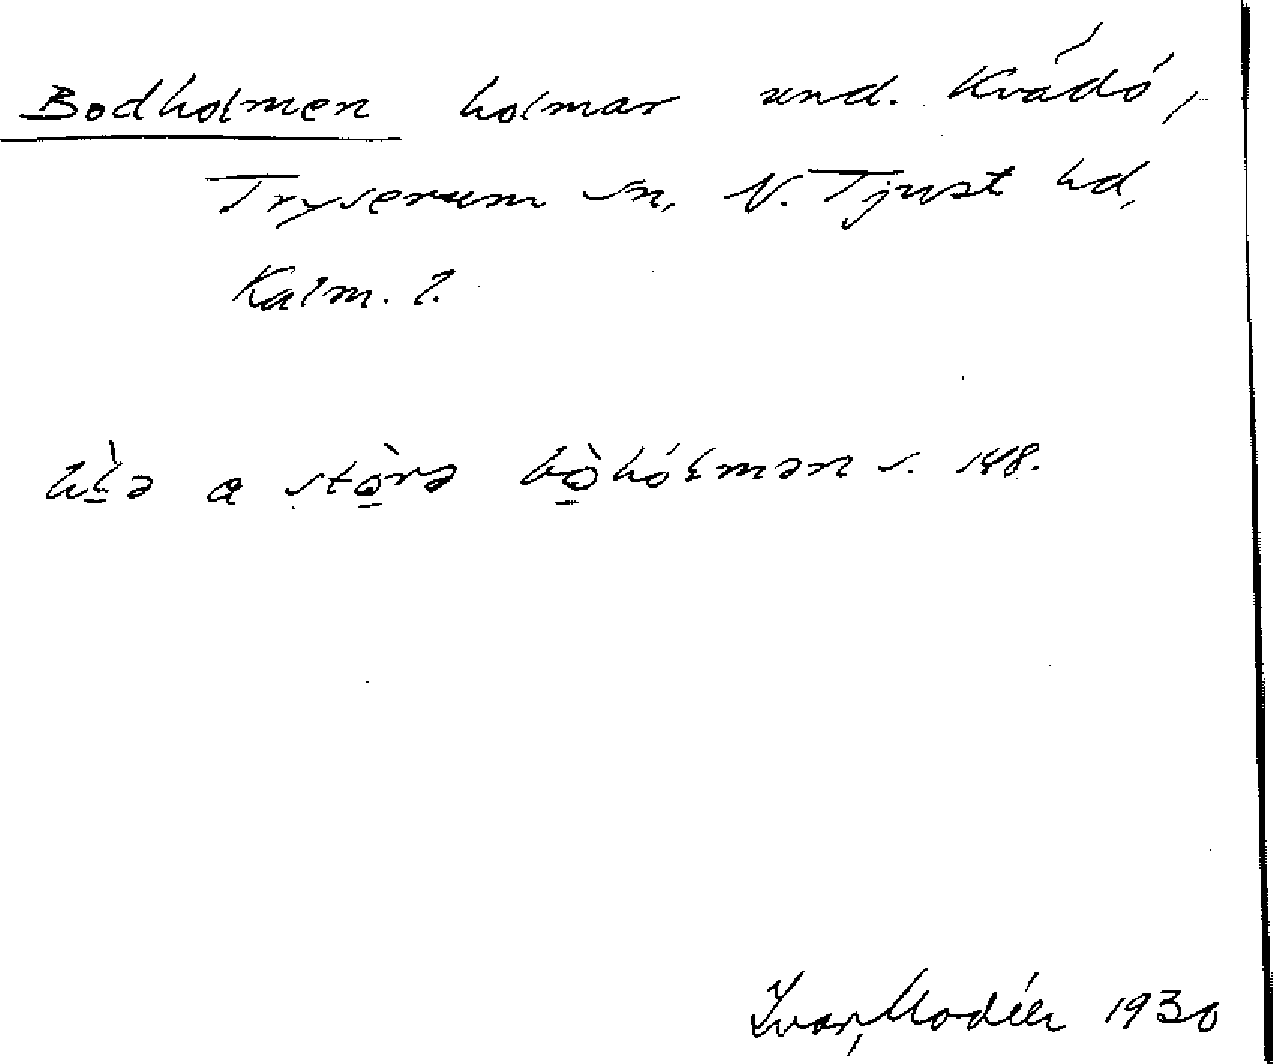 Bodholmen holmar und. Kvädö,
Tryserum sn, N. Tjust hd,
Kalm. l.
a stòrə bòhólmən s. 148.
Ivar Modéer 1930